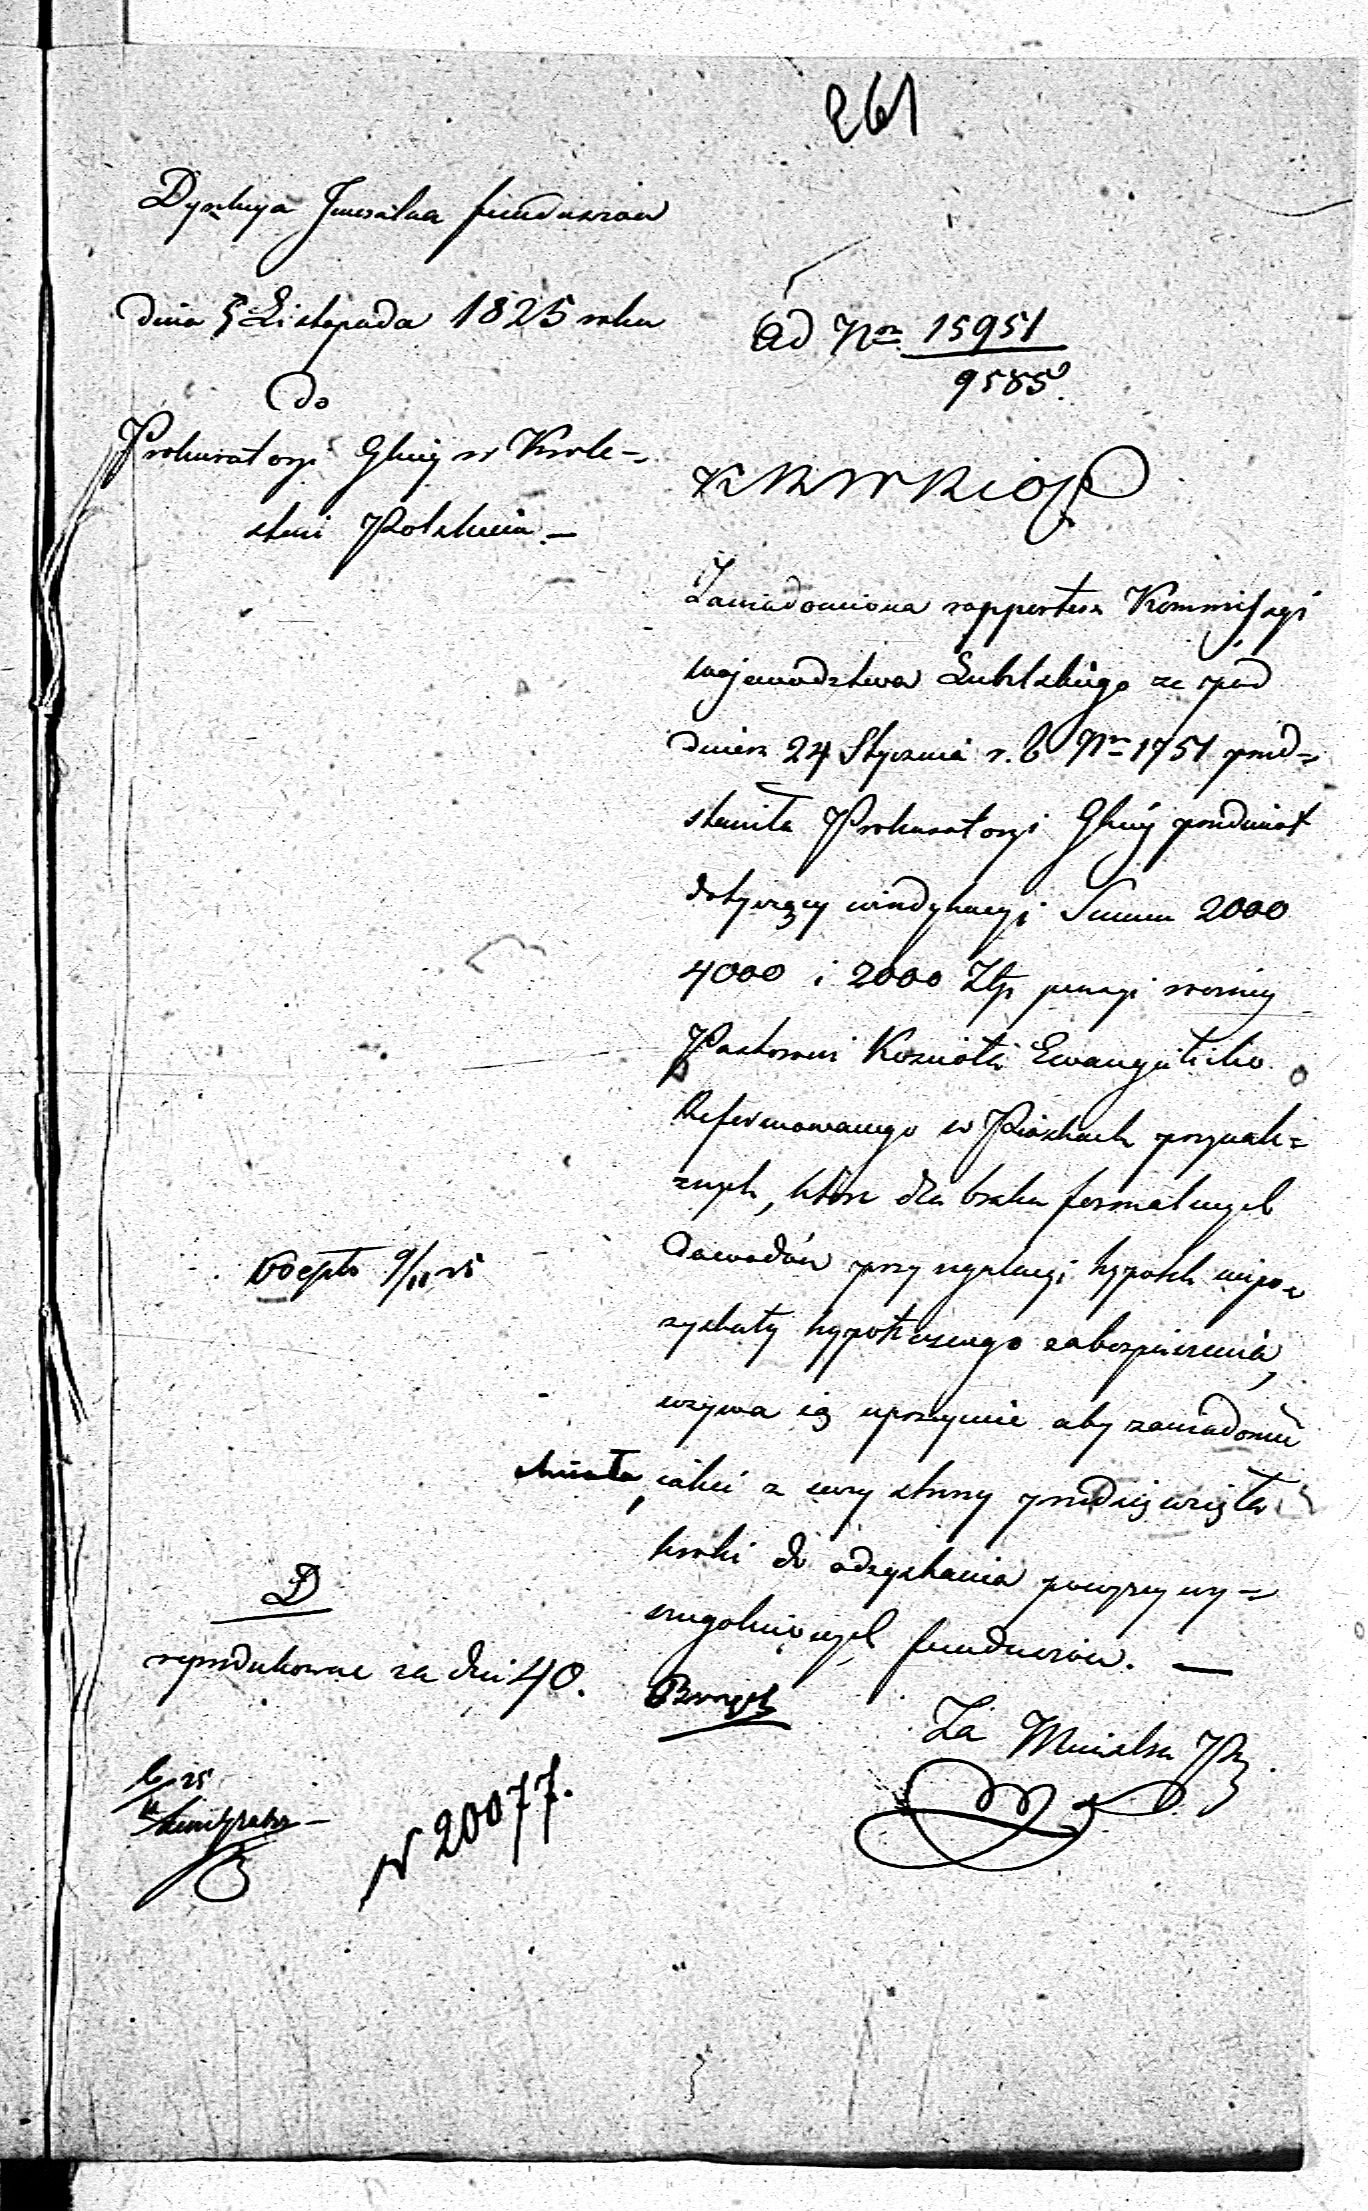 261
Dyrekcya Jeneralna funduszow
dnia 5 Listopada 1825 roku
Do
Prokuratoryi Głney w Krole-
stwie Polskiem. —
Ad Nrm 15951
9585.
KRWRiOP
Zawiadomiona rapportem Kommissyi
Wojewodztwa Lubelskiego ze pod
dniem 24 Stycznia r. b Nrm 1751 przed-
stawiła Prokuratoryi Głney przedmiot
dotyczący windykacyi Summ 2000
4000 i 2000 Złp pensyi roczney
Pastorowi Kościoła Ewangelicko
Reformowanego w Piaskach przynale-
żnych, które dla braku formalnych
Dowodów przy regulacyi hypotek niepo-
zyskały hypotecznego zabezpieczenia,
wzywa ią uprzeymie aby zawiadomić
chciała, iakie z swey strony przedsięwzięła
kroki do odzyskania powyżey wy-
szczególnionych funduszow. —
Za Ministra
Odeszło 9/11 25
D
reprodukowac za dni 40.
6/11 25
N 20077.